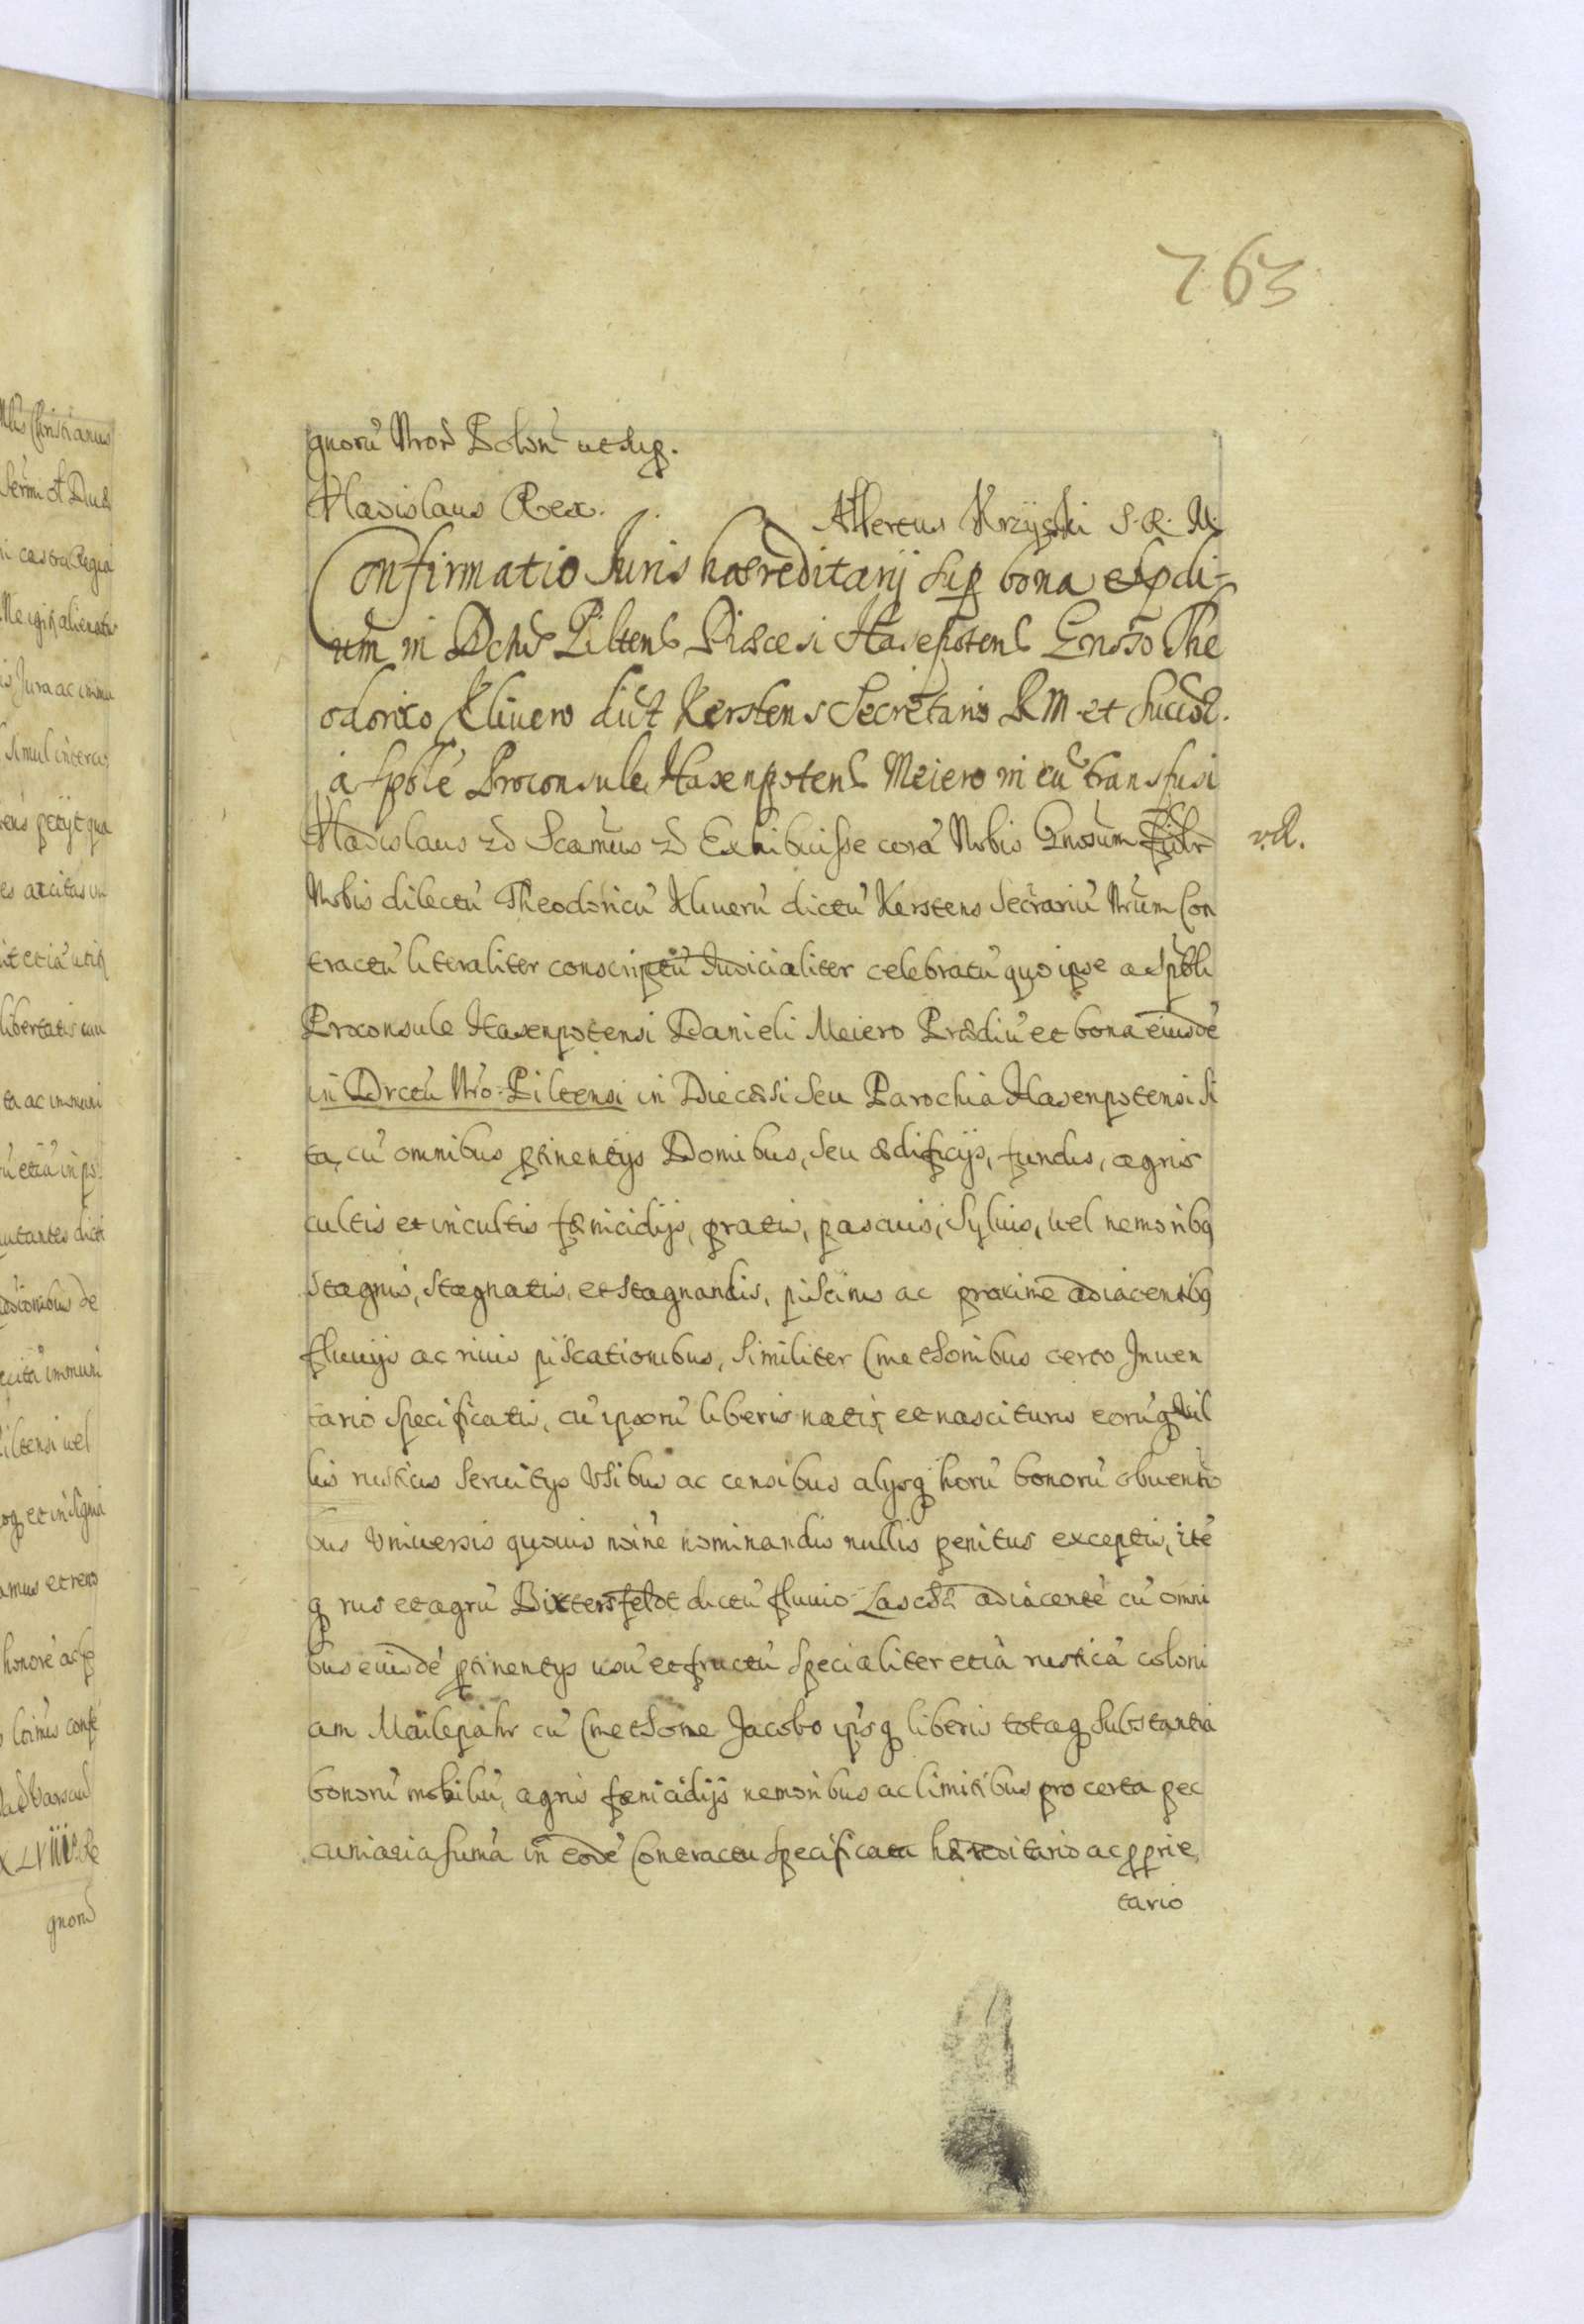 763
gnorũ Nror̃ Polon̄ ut sup.
Vladislaus Rex. Albertus Krzycki S. R. M.
Confirmatio Iuris haereditarij sup bona et p̄di-
um in Dctũ Piltens Diæcesi Hasepotens Gnoso The
odorico Kliuero dict Kerstens Secretario R M et Succoꝝ.
à spble Proconsule Hasenpotens Meiero in eũ transfusi
Vladislaus ꝛc Scamus ꝛc Exhibuisse corã Nobis Gnosum fidlr
Nobis dilectũ Theodoricũ Kliuerũ dictũ Kerstens Secrariũ Nrum Con
tractũ literaliter conscriptũ Iudicialiter celebratũ quo ipse a Spbli
Proconsule Hasenpotensi Danieli Meiero Prædiũ et bona eiusdẽ
in Drctu Nro Piltensi in Diecæsi seu Parochia Hasenpotensi si
ta, cũ omnibus ptinentijs Domibus, seu ædificijs, fundis, agris
cultis et incultis fænicidijs, pratis, pascuis, Syluis, vel nemoribꝗ
stagnis, stagnatis, et stagnandis, piscinis ac proxime adiacentibꝗ
fluuijs ac riuis piscationibus, similiter Cmethonibus certo Inuen
tario specificatis, cũ ipsorũ liberis natis, et nascituris eorũq vil
lis rusticis seruitijs Vsibus ac censibus alysq horũ bonorũ obuentio
bus Vniuersis quouis noĩne nominandis nullis penitus exceptis, itẽ
q rus et agrũ Bixtersfeldt dictũ fluuio Lasch adiacentẽ cũ omni
bus eiusdẽ ptinentijs usu et fructu specialiter etiã rusticã coloni
am Mailepahr cũ Cmethone Jacobo ipsq liberis totaq substantia
bonorũ mobiliũ, agris fænicidijs nemoribus ac limitibus pro certa pec
cuniaria sumã in eodẽ Contractu specificata hæreditario ac pprie
tario